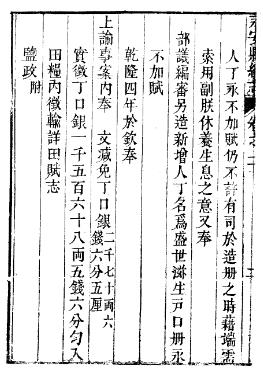 人丁永不加賦仍不許有司於造冊之時藉端需
索用副朕休養生息之意又奉
部議編審另造新增人丁名爲盛世滋生戸口册永
不加賦
乾隆四年於欽奉
上諭事案內奉　文減免丁口銀二千七十両六
錢六分五厘
實徵丁口銀一千五百六十八両五錢六分勻入
田糧內徵輸詳田賦志
鹽政附